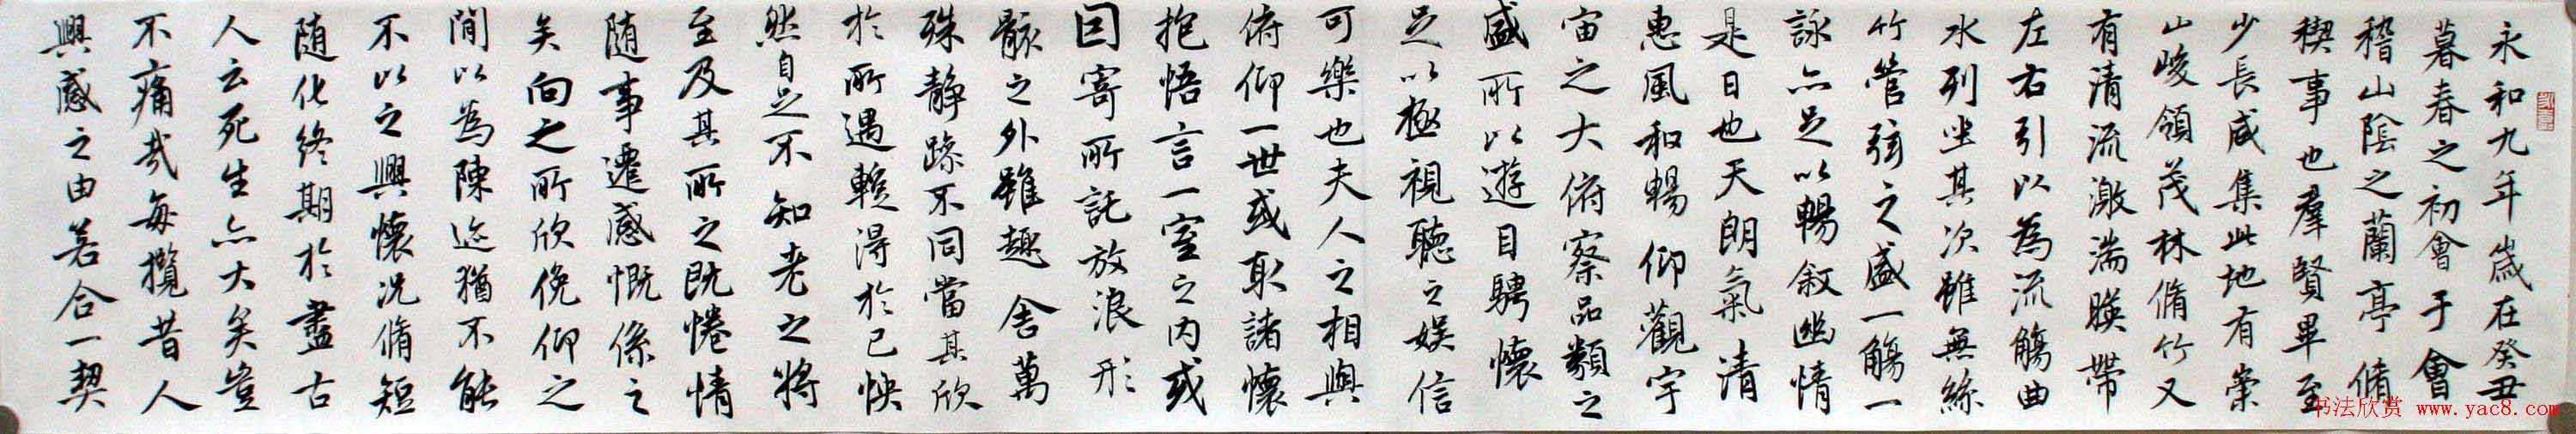 永和九年歲在癸丑
暮春之初會于會
稽山陰之蘭亭脩
稧事也羣賢畢至
少長咸集此地有崇
山峻領茂林脩竹又
有清流激湍暎帶
左右引以為流觴曲
水列坐其次雖無絲
竹管弦之盛一觴一
詠亦足以暢叙幽情
是日也天朗氣清
惠風和暢仰觀宇
宙之大俯察品類之
盛所以遊目騁懷
足以極視聽之娛信
可樂也夫人之相與
俯仰一世或取諸懷
抱悟言一室之內或
因寄所託放浪形
骸之外雖趣舍萬
殊靜躁不同當其欣
於所遇輒得於己怏
然自足不知老之將
至及其所之既惓情
随事遷感慨係之
矣向之所欣俛仰之
閒以為陳迹猶不能
不以之興懷況脩短
随化終期於盡古
人云死生亦大矣豈
不痛哉每攬昔人
興感之由若合一契
书法欣赏 www.yac8.com